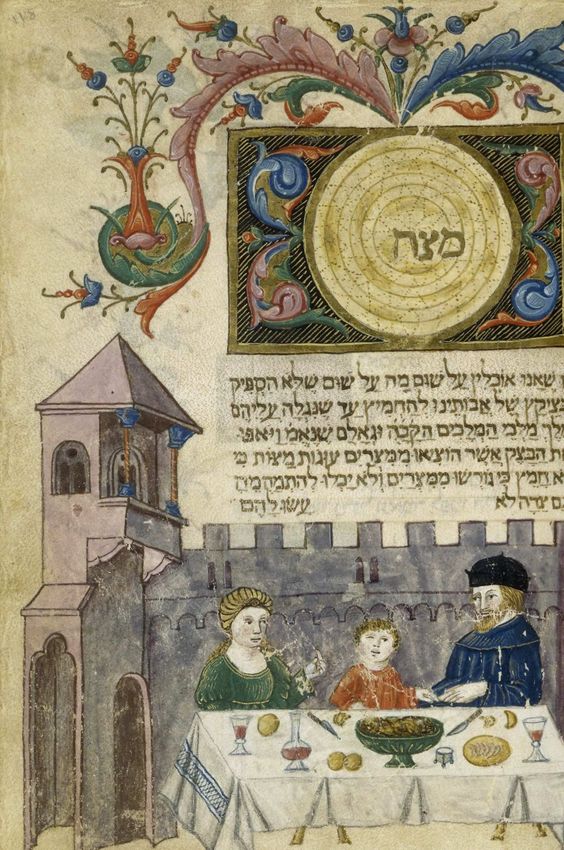 מצה
שאנו אוכלין על שום מה על שום שלא הספיק
בציקן של אבותינו להחמיץ עד שנגלה עליהם
מלכי המלכים הקבה וגאלם שנאמ' ויאפו
הבצק אשר הוציאו ממצרים עוגות מצות כי
חמץ כי גורשו ממצרים ולא יכלו להתמהמה
צדה לא עשו להם